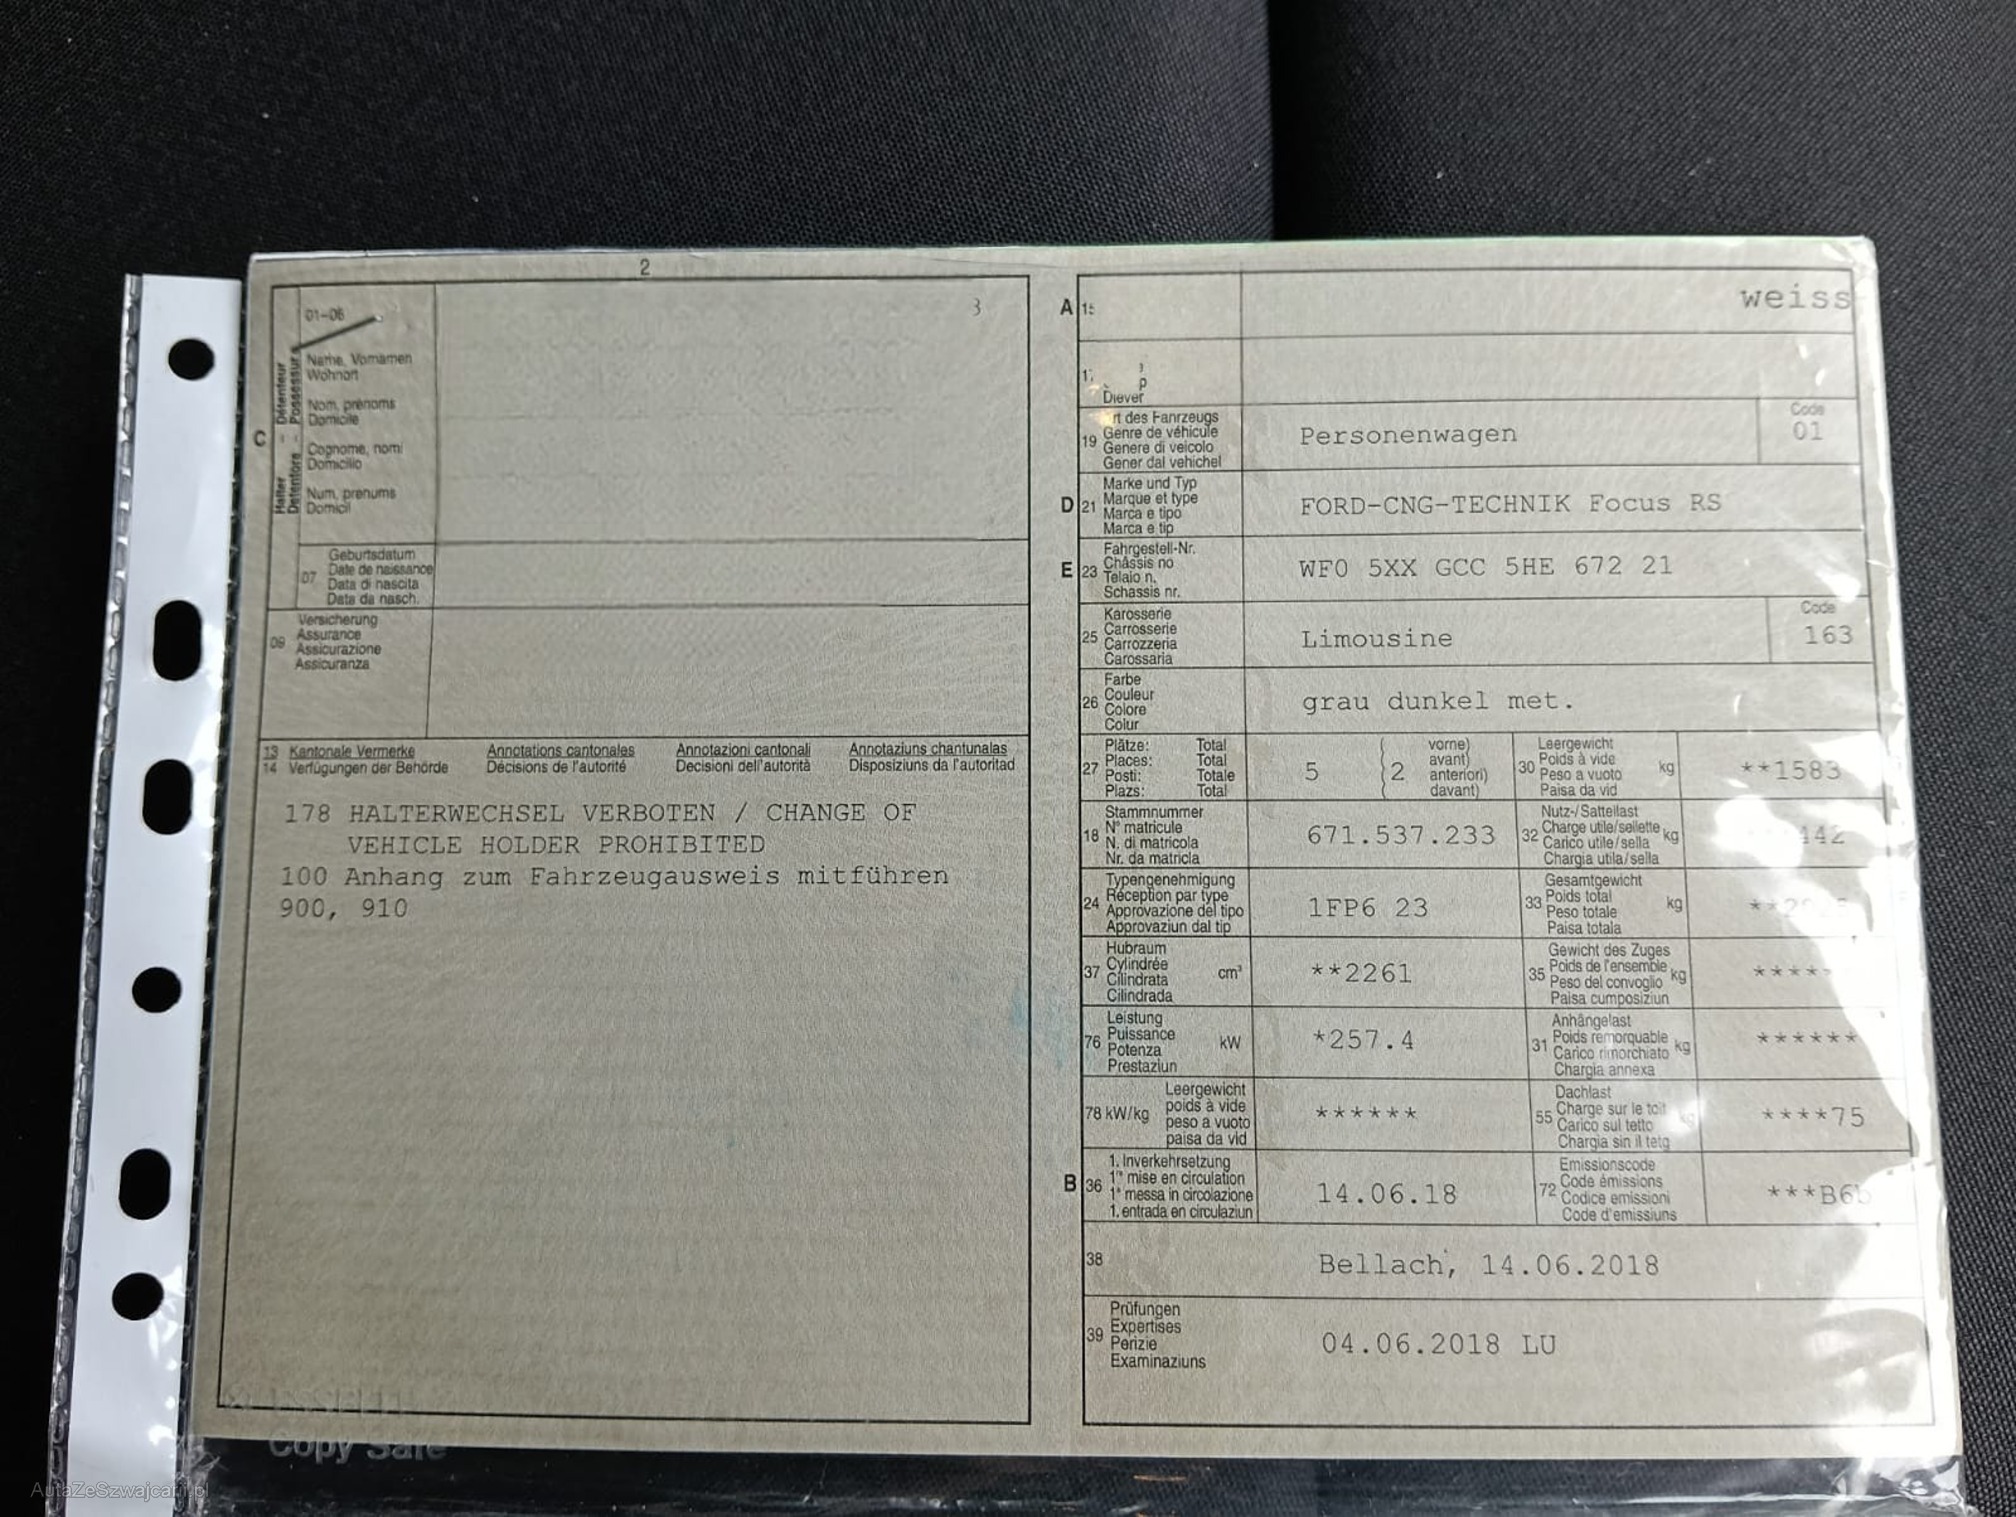 2
3
01-06
Name, Vornamen
Wohnort
Nom, prénoms
Domicile
Cognome, nomi
Domicilio
Num, prenums
Domicil
C
Halter - Détenteur
Detentore - Possessur
07
Geburtsdatum
Date de naissance
Data di nascita
Data da nasch.
09
Versicherung
Assurance
Assicurazione
Assicuranza
13 Kantonale Vermerke Annotations cantonales Annotazioni cantonali Annotaziuns chantunalas
14 Verfügungen der Behörde Décisions de l'autorité Decisioni dell'autorità Disposiziuns da l'autoritad
178 HALTERWECHSEL VERBOTEN / CHANGE OF
VEHICLE HOLDER PROHIBITED
100 Anhang zum Fahrzeugausweis mitführen
900, 910
A 15
weiss
Diever
19
Art des Fahrzeugs
Genre de véhicule
Genere di veicolo
Gener dal vehichel
Personenwagen
Code
01
D 21
Marke und Typ
Marque et type
Marca e tipo
Marca e tip
FORD-CNG-TECHNIK Focus RS
E 23
Fahrgestell-Nr.
Châssis no
Telaio n.
Schassis nr.
WF0 5XX GCC 5HE 672 21
25
Karosserie
Carrosserie
Carrozzeria
Carossaria
Limousine
Code
163
26
Farbe
Couleur
Colore
Colur
grau dunkel met.
27
Plätze: Total
Places: Total
Posti: Totale
Plazs: Total
5
2
vorne)
avant)
anteriori)
davant)
30
Leergewicht
Poids à vide
Peso a vuoto
Paisa da vid
kg
**1583
18
Stammnummer
N° matricule
N. di matricola
Nr. da matricla
671.537.233
32
Nutz-/Sattellast
Charge utile/sellette
Carico utile/sella
Chargia utila/sella
kg
24
Typengenehmigung
Réception par type
Approvazione del tipo
Approvaziun dal tip
1FP6 23
33
Gesamtgewicht
Poids total
Peso totale
Paisa totala
kg
37
Hubraum
Cylindrée
Cilindrata
Cilindrada
cm³
**2261
35
Gewicht des Zuges
Poids de l'ensemble
Peso del convoglio
Paisa cumposiziun
kg
76
Leistung
Puissance
Potenza
Prestaziun
kW
*257.4
31
Anhängelast
Poids remorquable
Carico rimorchiato
Chargia annexa
kg
******
78 kW/kg
Leergewicht
poids à vide
peso a vuoto
paisa da vid
******
55
Dachlast
Charge sur le toit
Carico sul tetto
Chargia sin il tetg
kg
****75
B 36
1. Inverkehrsetzung
1re mise en circulation
1a messa in circolazione
1. entrada en circulaziun
14.06.18
72
Emissionscode
Code émissions
Codice emissioni
Code d'emissiuns
***B6b
38
Bellach, 14.06.2018
39
Prüfungen
Expertises
Perizie
Examinaziuns
04.06.2018 LU
Copy Safe
AutaZeSzwajcarii.pl